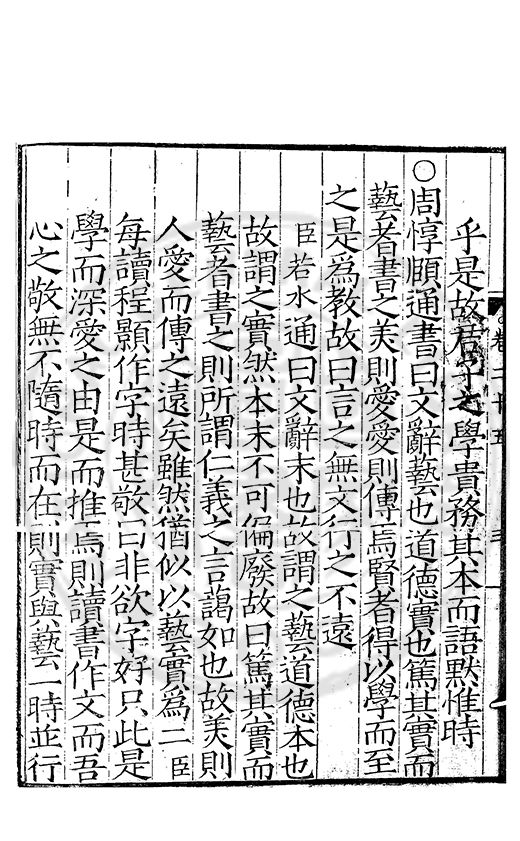 乎是故君子之學貴務其本而語默惟時
○周惇頤通書曰文辭藝也道德實也篤其實而
藝者書之美則愛愛則傳焉賢者得以學而至
之是為教故曰言之無文行之不遠
臣若水通曰文辭末也故謂之藝道德本也
故謂之實然本末不可偏廢故曰篤其實而
藝者書之則所謂仁義之言藹如也故美則
人愛而傳之遠矣雖然猶似以藝實為二臣
每讀程顥作字時甚敬曰非欲字好只此是
學而深愛之由是而推焉則讀書作文而吾
心之敬無不隨時而在則實與藝一時並行